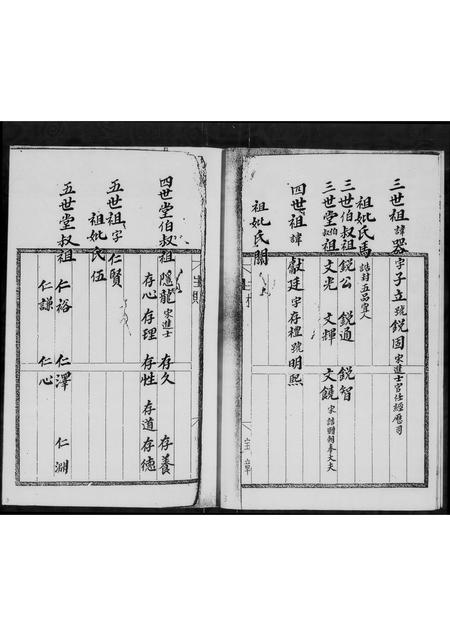 三世祖諱器字子立號鋭固宋進士官任經歷司
祖妣氏馬誥封五品宜人
三世伯叔祖鋭公 鋭通 鋭智
三世堂伯叔祖文光 文輝 文饒宋誥贈朝奉大夫
四世祖諱獻廷字存禮號明熙
祖妣氏關
四世堂伯叔祖隱龍宋進士 存久 存養
存心 存理 存性 存道 存德
五世祖字仁賢
祖妣氏伍
五世堂叔祖 仁裕 仁澤 仁淵
仁謙 仁心